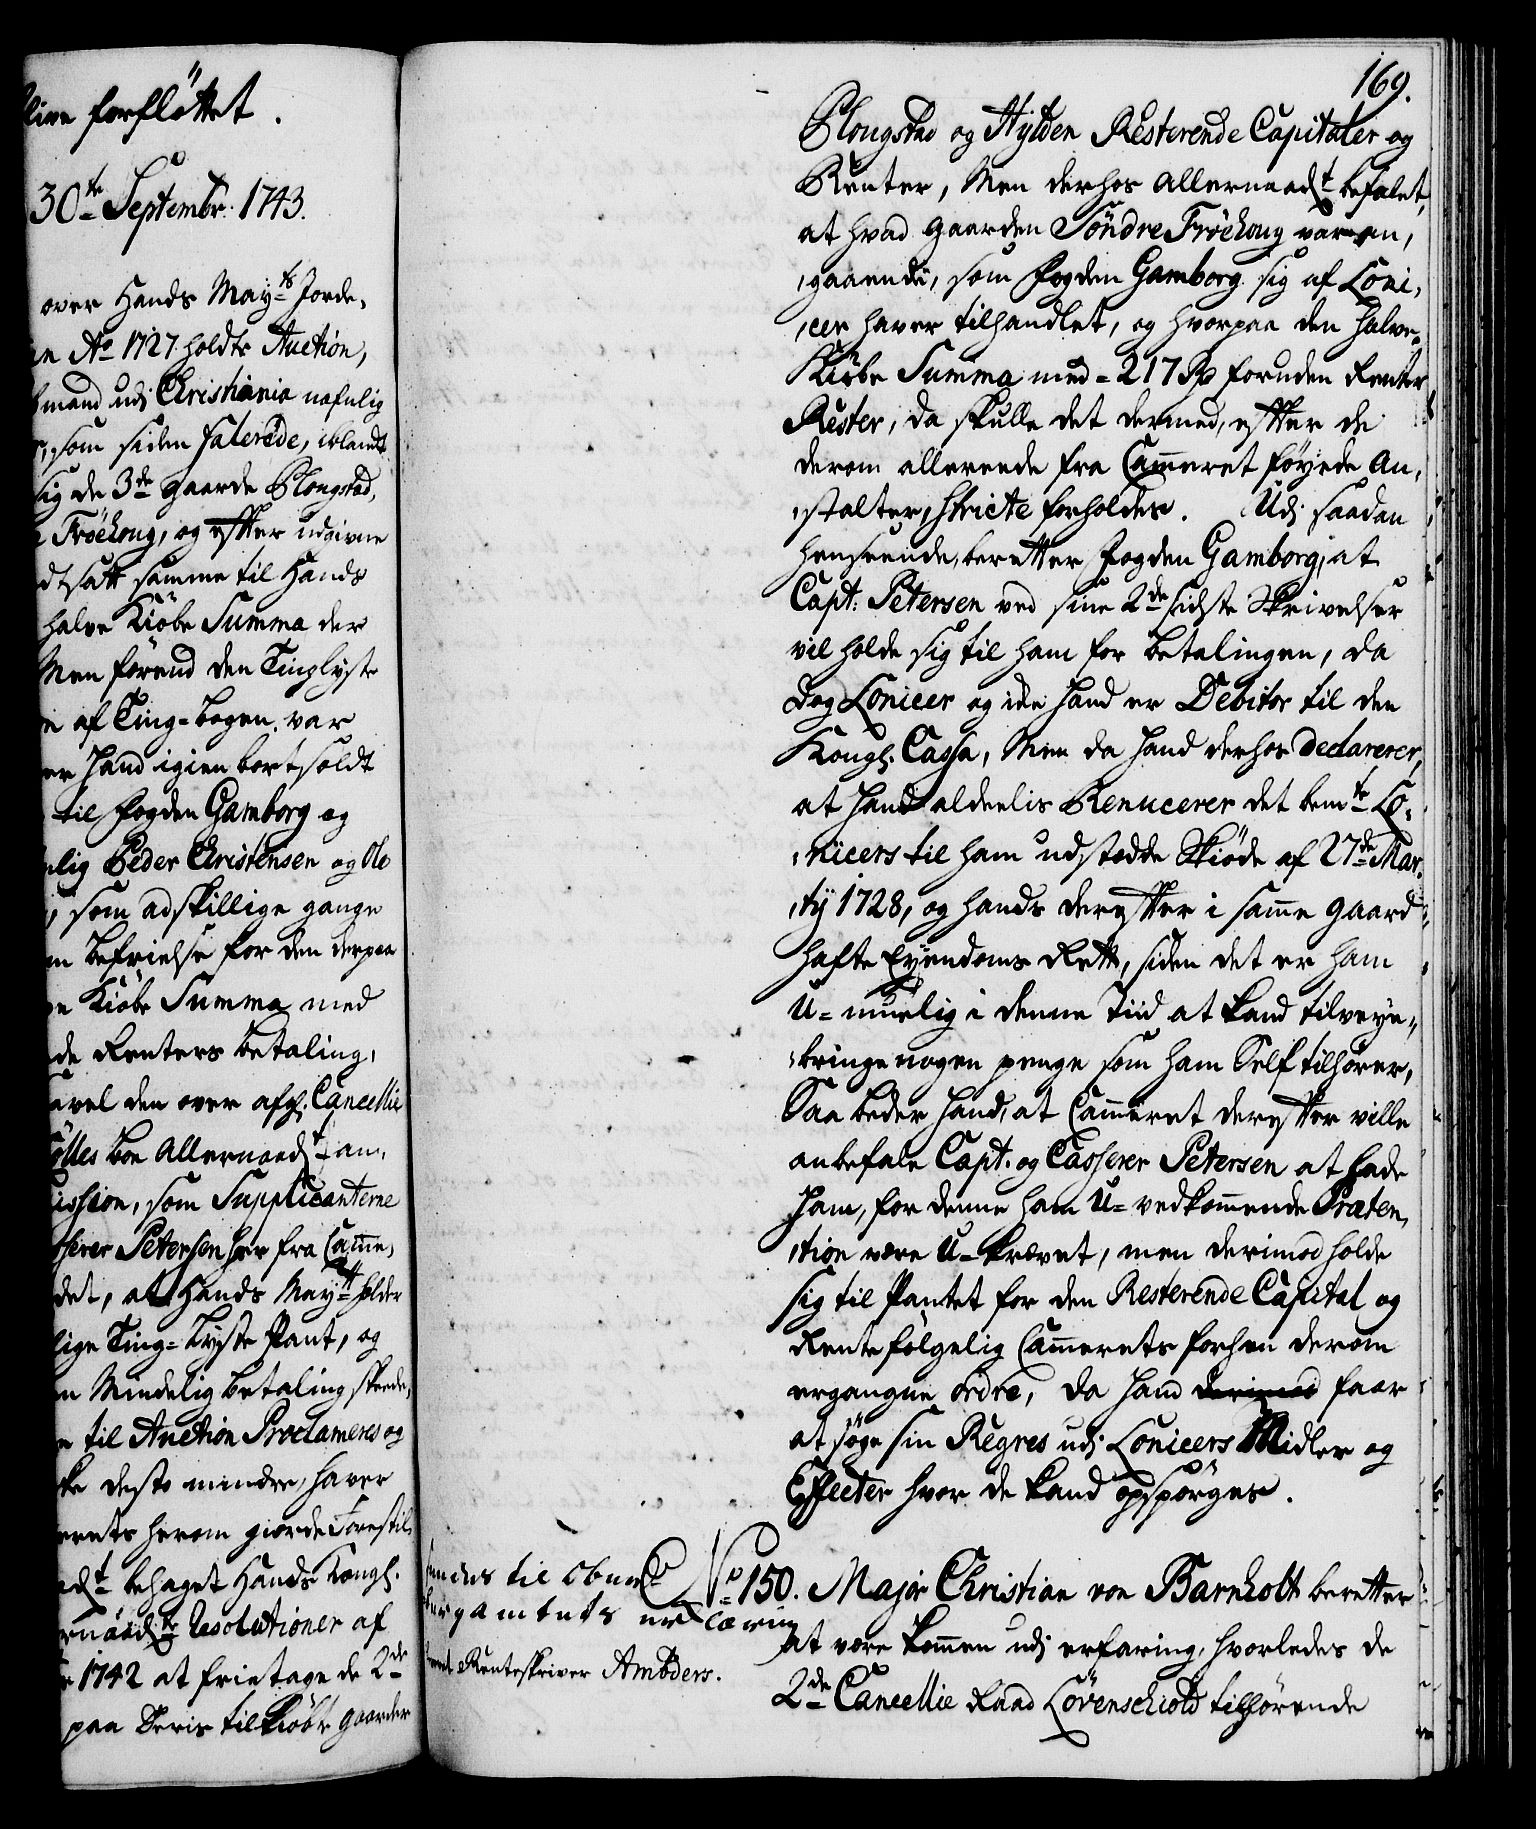 live forfløttet.
30te Septembr. 1743.
over Hands Mayts Jorde,
An Ao 1727 holdte Auction,
mand udj Christiania nafnlig
som siden falerede, iblandt
sig de 3de gaarde Plongstad,
Frøehoug, og efter udgivne
dtsatt samme til Hands
halve Kiöbe Summa der
Men förend den Tinglyste
af Ting-bogen var
er Hand igien bortsoldt
til fogden Gamborg og
nlig Peder Christensen og Ole
som adskillige gange
befrielse for den derpaa
Kiöbe Summa med
de Renters betaling,
savel den over afg. Cancellie
ölles boe Allernaadt an,
ission, som Supplicanterne
sserer Petersen her fra Came,
det, at Hands Mayt holder
lige Ting-Lyste Pant, og
Mindelig betaling skeede,
til Auction Proclameres og
ke desto mindre, haver
erets herom giorde Forestil,
adt behaget Hands Kongl.
rnaadte Resolutioner af
1742 at fritage de 2de
paa Deris tilkiöbte gaarder
169.
Plongstad og Hylden Resterende Capitaler og
Renter, Men derhos Allernaadt befalet,
at hvad gaarden Söndre Fröehoug var an,
,gaaende, som fogden Gamborg sig af Loni,
,cer haver tilhandlet, og hvorpaa den halve
Kiöbe Summa med = 217 Rd foruden Renter
Rester, da skulle det dermed, efter de
derom allereede fra Cammeret föyede An,
,stalter, stricte forholdes. Udj saadan
henseende, beretter fogden Gamborg, at
Capt: Petersen ved sine 2de sidste Skrivelser
vil holde sig til ham for betalingen, da
dog Lonicer og icke hand er Debitor til den
Kongl. Cassa, Men da hand derhos declarerer,
at hand aldeelis Renucerer det bemte Lo,
,nicers til ham udstædde Skiöde af 27de Mar,
,tij 1728, og hands derefter i samme gaard
hafte Eyendoms Rett, siden det er ham
U=muelig i denne Tiid at kand tilveye,
,bringe nogen penge som ham Self tilhører,
Saa beder hand, at Cammeret derefter ville
anbefale Capt. og Casserer Petersen at lade
ham, for denne ham U=vedkommende Præten,
,tion være U=krævet, men derimod holde
sig til Pantet for den Resterende Capital og
Rente følgelig Cammerets forhen derom
ergangne ordre, da hand derimod faar
at söge sin Regres udj Lonicers Midler og
Effecter hvor de kand opspörges.
No 150. Major Christian von Barnholt beretter
at være kommen udj erfaring, hvorledes de
2de Cancellie Raad Lövenschiold tilhörende
til
Renteskriver Ambders.